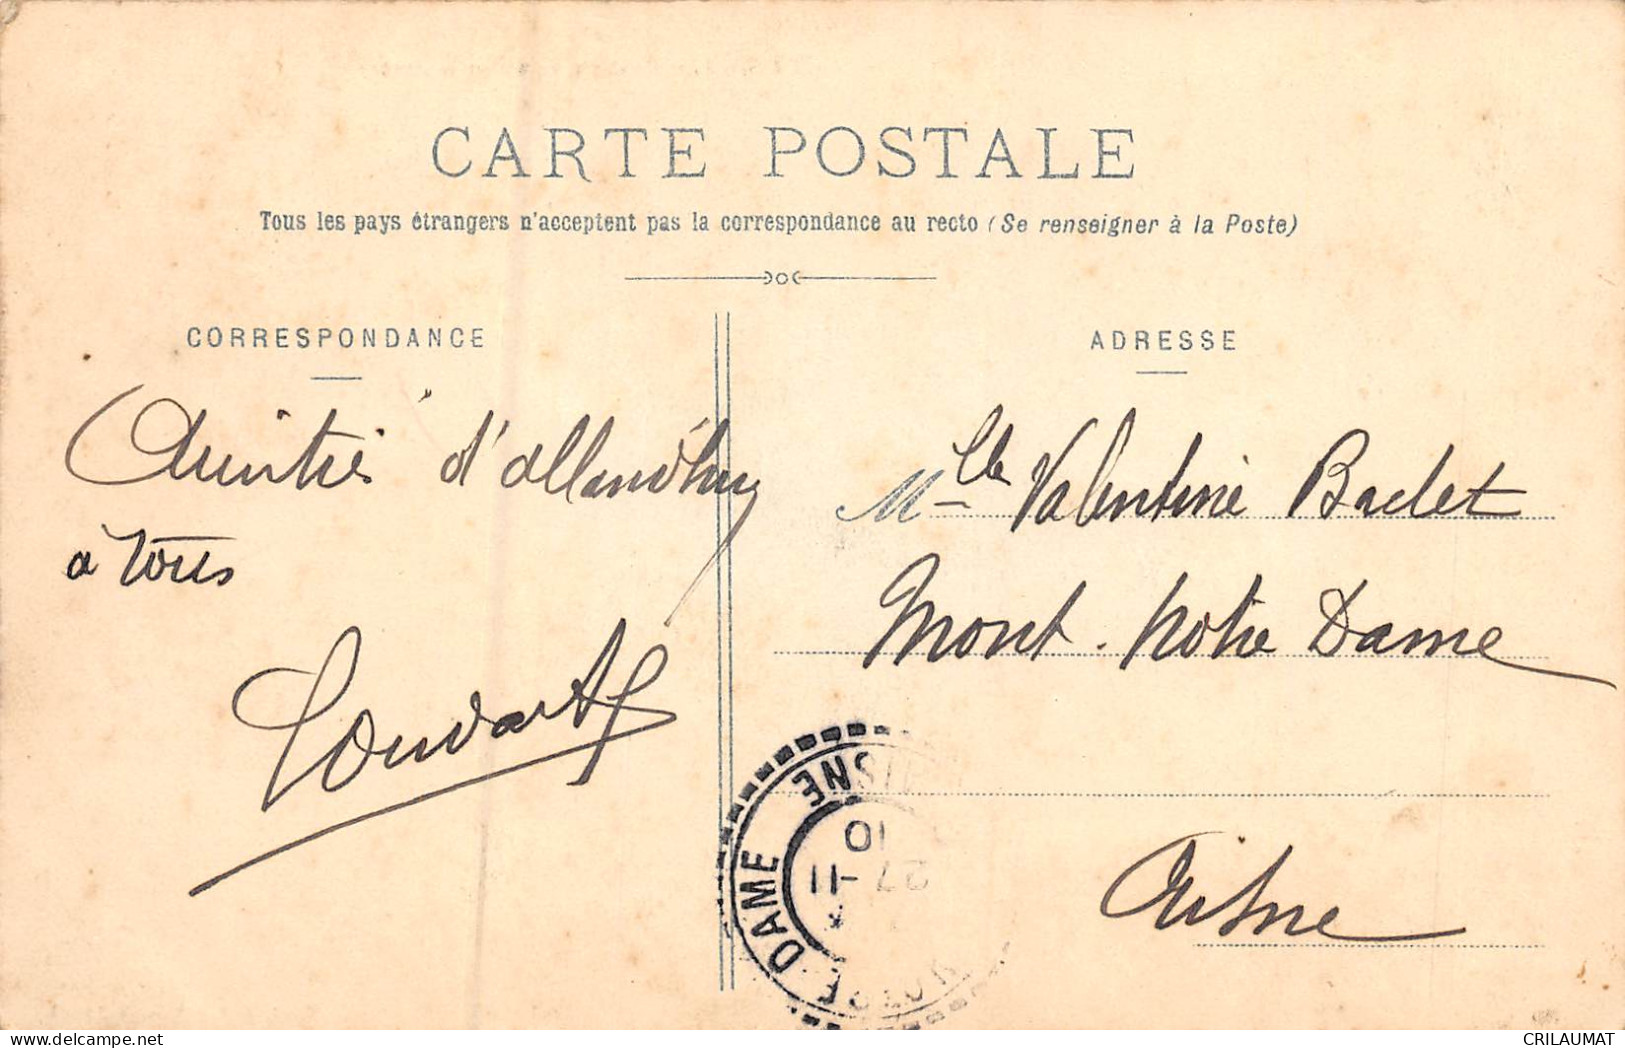 CARTE POSTALE
Tous les pays étrangers n'acceptent pas la correspondance au recto (Se renseigner à la Poste)
CORRESPONDANCE
Amitiés d'
à tous
ADRESSE
Mlle Valentine Badet
Mont-Notre Dame
Aisne
DAME
AISNE
10
27 - 11
CRILAUMAT